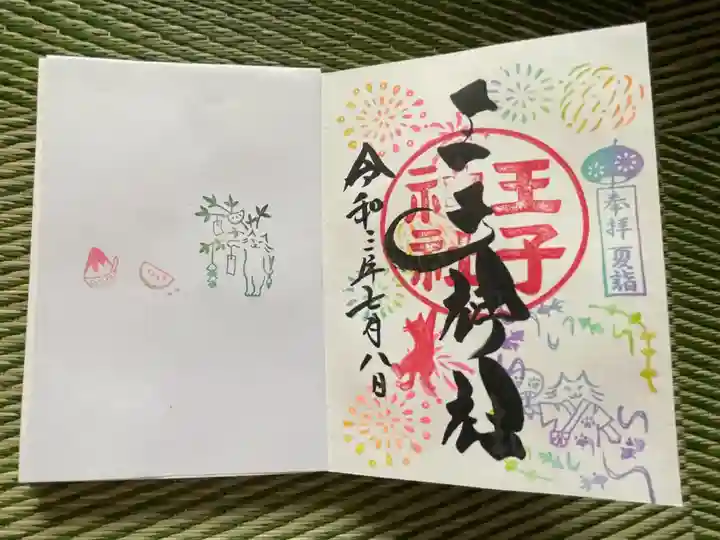 奉拝 夏詣
王子神社
王子
神社
令和三年七月八日